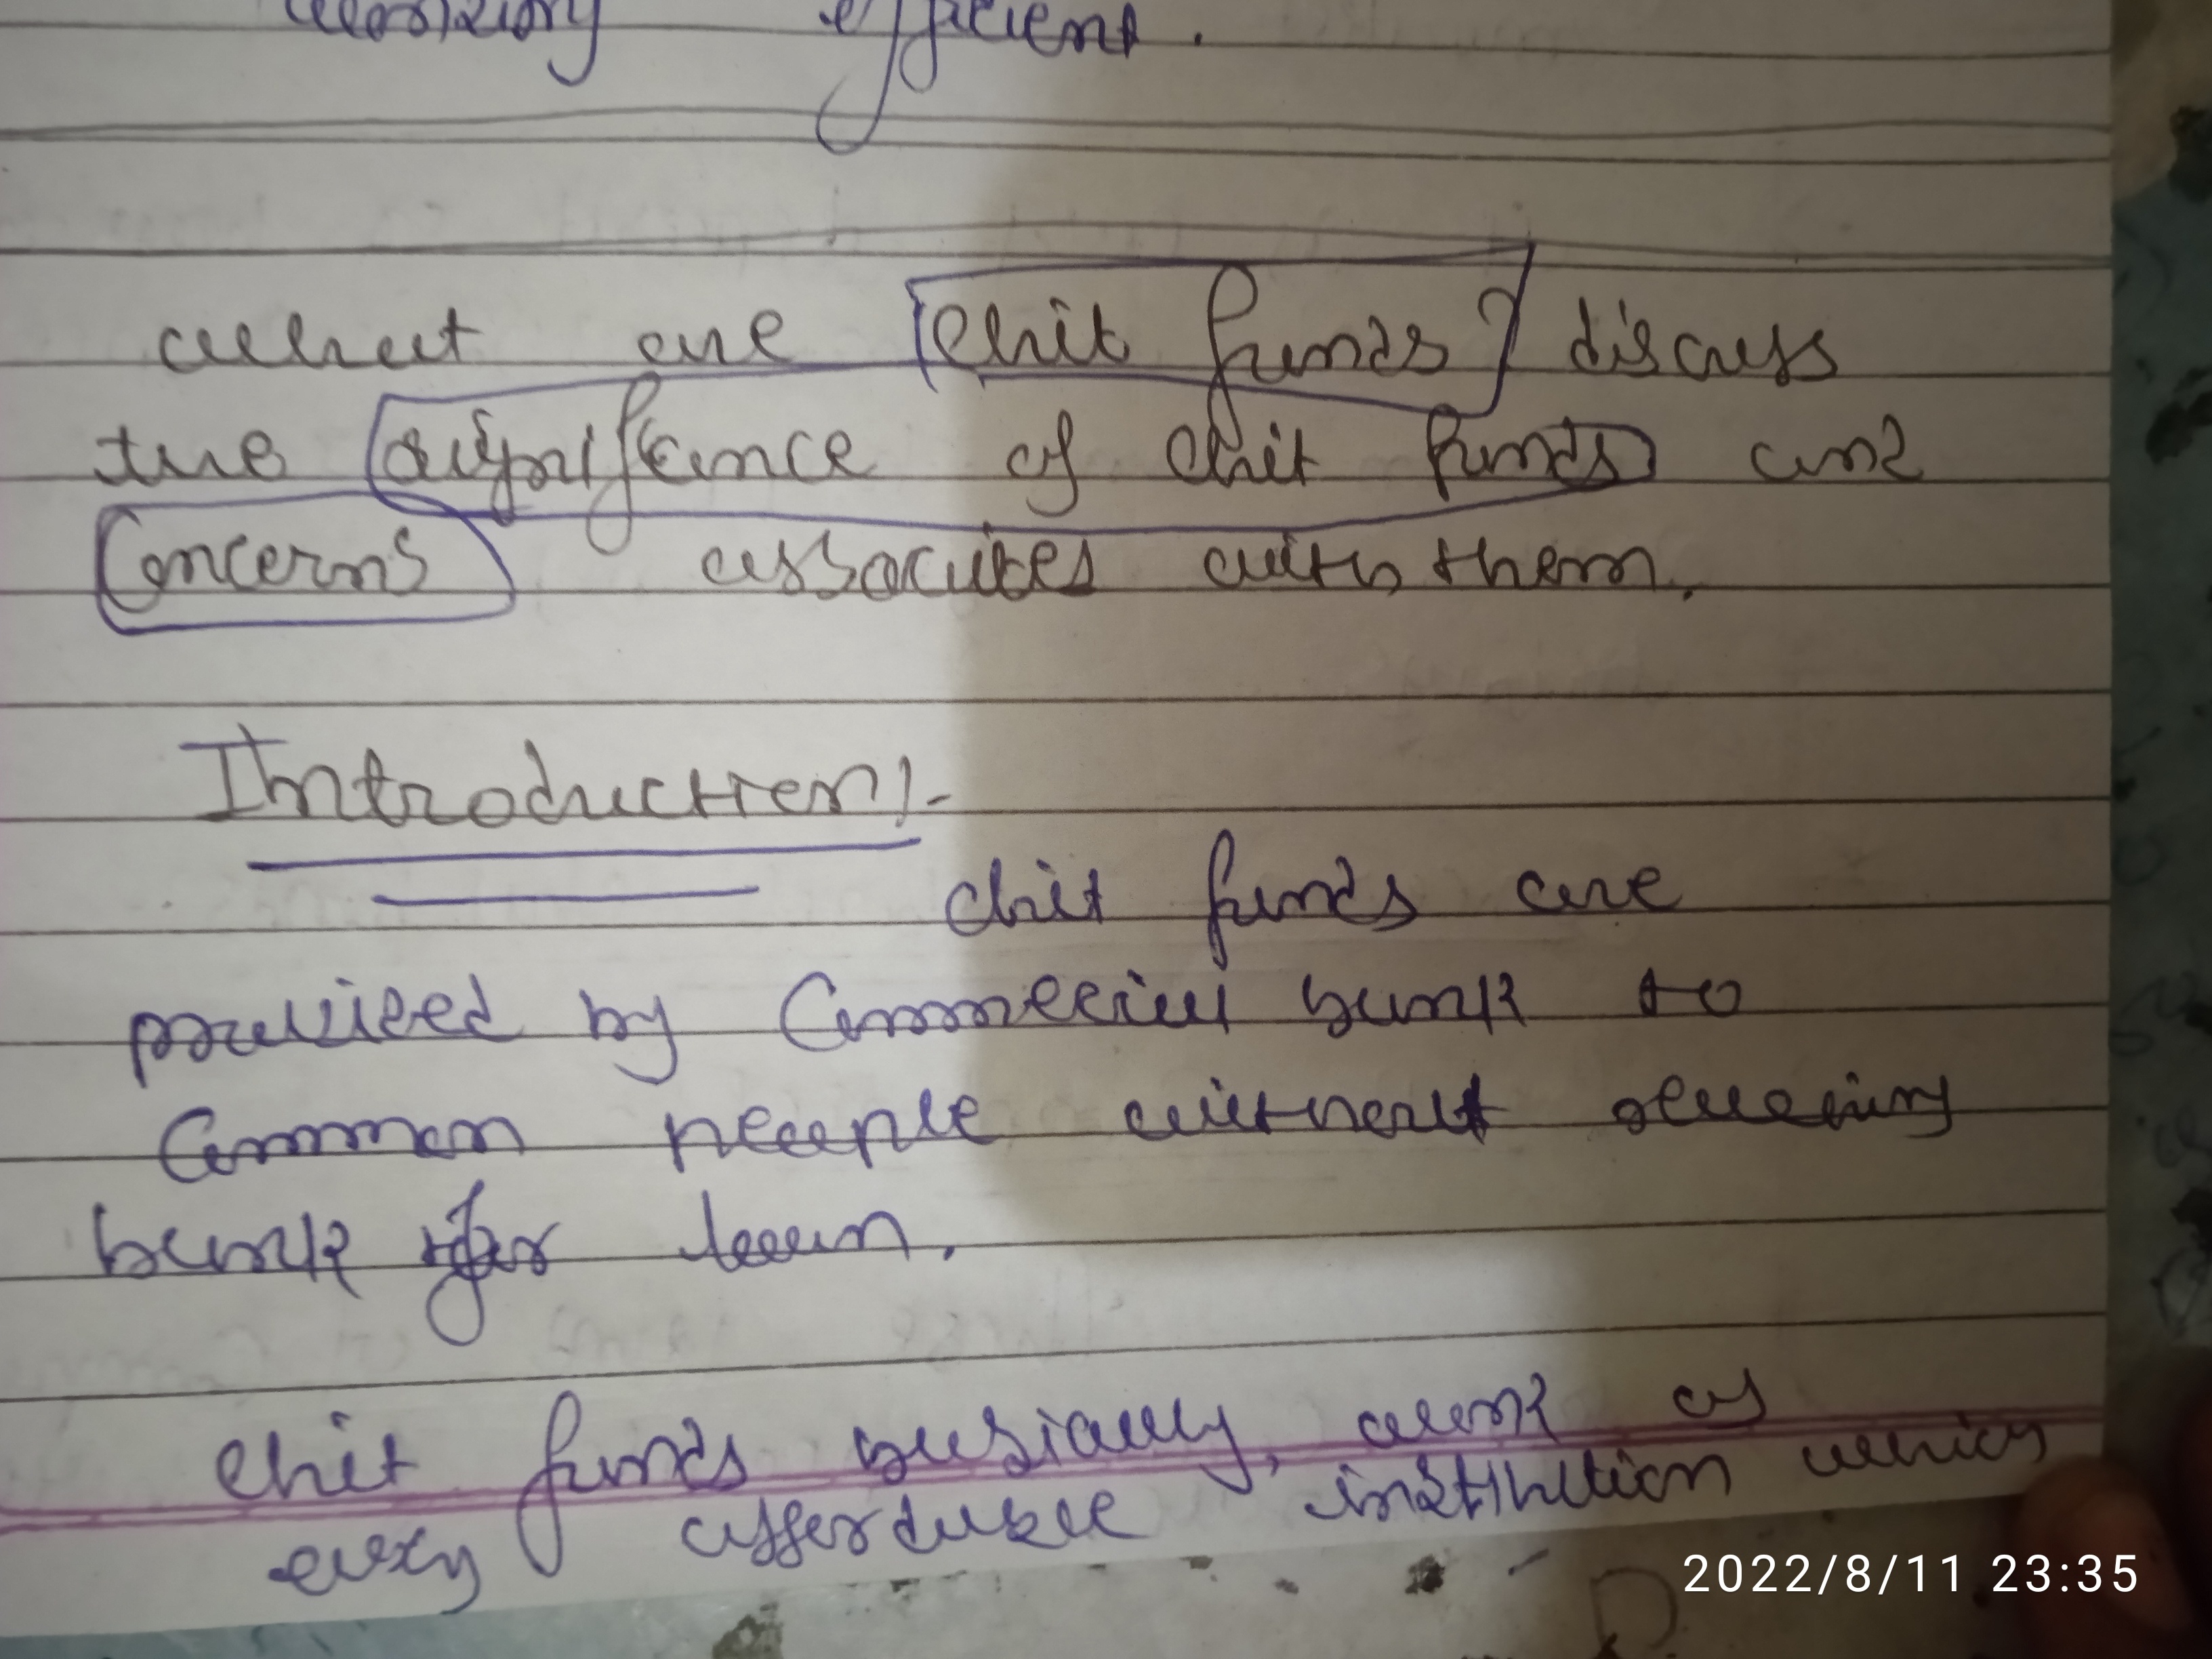 efficient.
what are chit funds? discuss
the significance of chit funds and
Concerns associates with them.
Introduction:-
chit funds are
provided by Commercial bank to
Common people without
bank for loan.
chit funds basically, work as
every affordable institution which
2022/8/11 23:35